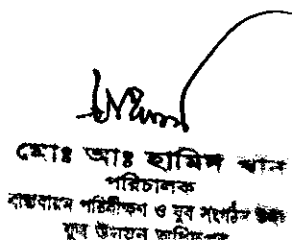 মোঃ আঃ হামিদ খান
পরিচালক
বাস্তবায়ন পরিবীক্ষণ ও যুব সংগঠন
যুব উন্নয়ন অধিদপ্তর